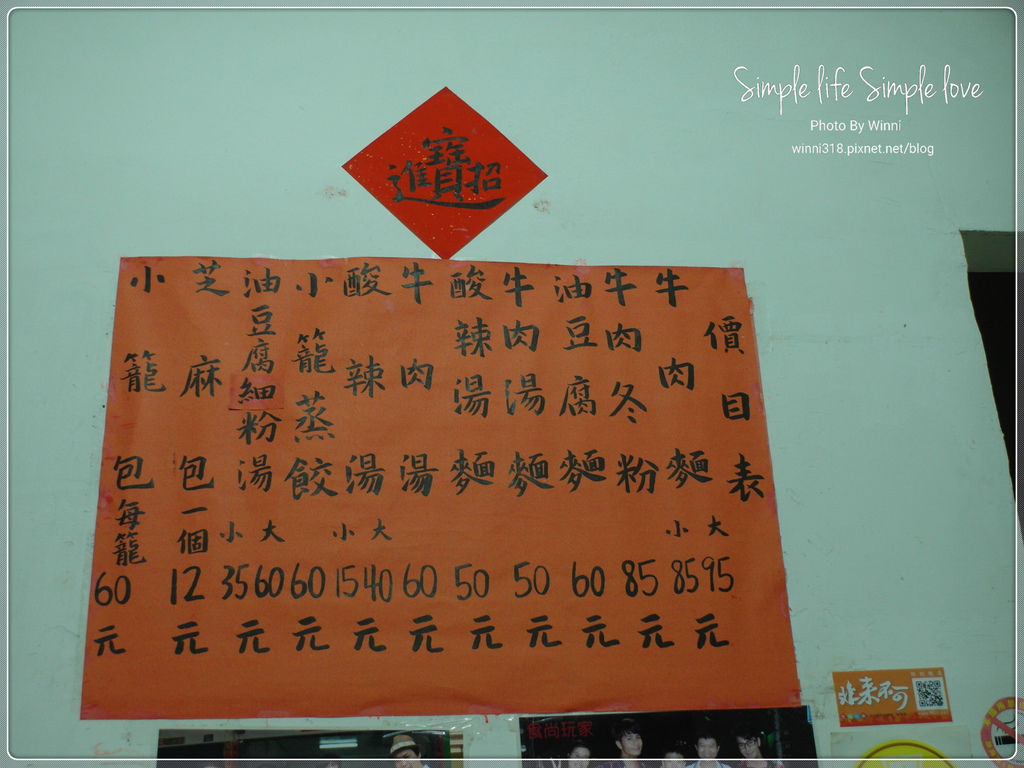 Simple life Simple love
Photo By Winni
winni318.pixnet.net/blog
招進寶
價目表
牛肉麵 大 95 小 85 元
牛肉冬粉 85 元
油豆腐麵 60 元
牛肉湯麵 50 元
酸辣湯麵 50 元
牛肉湯 60 元
酸辣湯 大 40 小 15 元
小籠蒸餃 60 元
油豆腐細粉湯 大 60 小 35 元
芝麻包 一個 12 元
小籠包 每籠 60 元
食尚玩家
非來不可